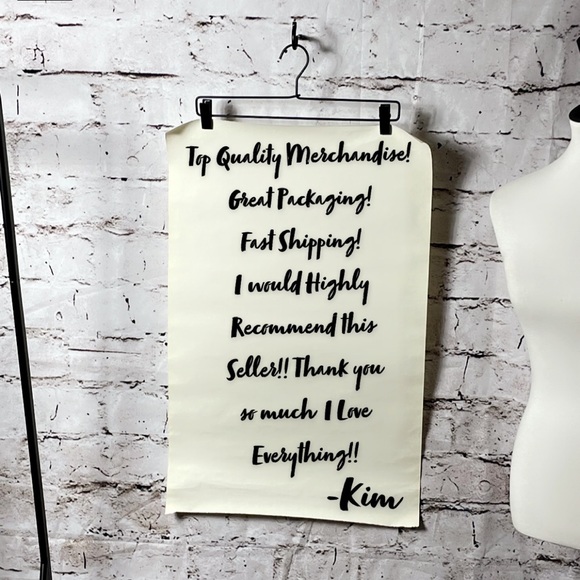 Top Quality Merchandise!
Great Packaging!
Fast Shipping!
I would Highly
Recommend this
Seller!! Thank you
so much I Love
Everything!!
-Kim